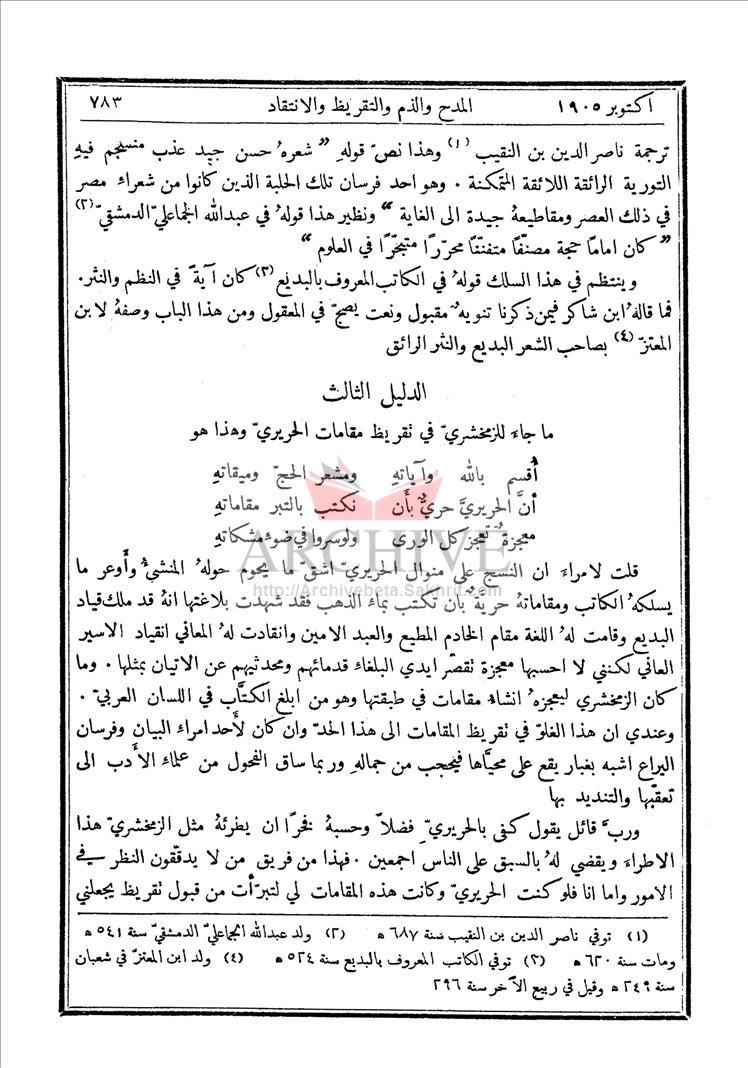 اكتوبر ١٩٠٥ المدح والذم والتقريظ والانتقاد ٧٨٣
ترجمة ناصر الدين بن النقيب (١) وهذا نصّ قولهِ " شعرهُ حسن جيد عذب منسجم فيهِ
التورية الرائقة اللائقة المتمكنة . وهو احد فرسان تلك الحلبة الذين كانوا من شعراء مصر
في ذلك العصر ومقاطيعهُ جيدة الى الغاية " ونظير هذا قولهُ في عبدالله الجماعليّ الدمشقيّ (٢)
" كان اماماً حجة مصنّفاً متفنّناً محرّراً متبحّراً في العلوم "
وينتظم في هذا السلك قولهُ في الكاتب المعروف بالبديع (٣) كان آيةً في النظم والنثر.
فما قالهُ ابن شاكر فيمن ذكرنا تنويهٌ مقبول ونعت يصحّ في المعقول ومن هذا الباب وصفهُ لابن
المعتزّ (٤) بصاحب الشعر البديع والنثر الرائق
الدليل الثالث
ما جاءَ للزمخشريّ في تقريظ مقامات الحريريّ وهذا هو
أُقسم بالله وآياتهِ ومشعر الحجّ وميقاتهِ
أنَّ الحريريَّ حريٌّ بأَن نكتب بالتبر مقاماتهِ
معجزةٌ تعجز كل الورى ولو سروا في ضوءِ مشكاتهِ
ARCHIVE
http://Archivebeta.Sakhrit.com
قلت لا مراءَ ان النسج على منوال الحريريّ اشقّ ما يحوم حولهُ المنشيءُ وأَوعر ما
يسلكهُ الكاتب ومقاماتهُ حريةٌ بأن تكتب بماءِ الذهب فقد شهدت بلاغتها انهُ قد ملك قياد
البديع وقامت لهُ اللغة مقام الخادم المطيع والعبد الامين وانقادت لهُ المعاني انقياد الاسير
العاني لكنني لا احسبها معجزة تقصّر ايدي البلغاءِ قدمائهم ومحدثيهم عن الاتيان بمثلها . وما
كان الزمخشري ليعجزهُ انشاءُ مقامات في طبقتها وهو من ابلغ الكتَّاب في اللسان العربيّ .
وعندي ان هذا الغلوّ في تقريظ المقامات الى هذا الحدّ وان كان لأَحد امراء البيان وفرسان
اليراع اشبه بغبار يقع على محيَّاها فيحجب من جمالهِ وربما ساق الفحول من علماءِ الأَدب الى
تعقّبها والتنديد بها
وربَّ قائل يقول كفى بالحريريّ فضلاً وحسبهُ فخراً ان يطرئهُ مثل الزمخشريّ هذا
الاطراء ويقضي لهُ بالسبق على الناس اجمعين . فهذا من فريق من لا يدقّقون النظر في
الامور واما انا فلو كنت الحريريّ وكانت هذه المقامات لي لتبرّأت من قبول تقريظ يجعلني
(١) توفي ناصر الدين بن النقيب سنة ٦٨٧ ھ (٢) ولد عبدالله الجماعليّ الدمشقيّ سنة ٥٤١ ھ
ومات سنة ٦٢٠ ھ (٣) توفي الكاتب المعروف بالبديع سنة ٥٢٤ ھ (٤) ولد ابن المعتزّ في شعبان
سنة ٢٤٩ ھ وقيل في ربيع الآخر سنة ٢٩٦